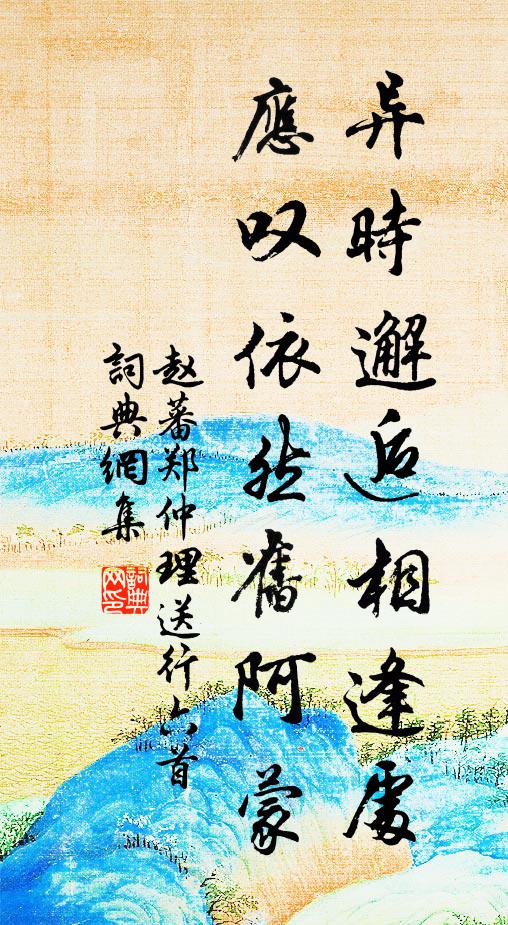 异時邂逅相逢處
應叹依然舊阿蒙
赵蕃郑仲理送行六首
詞典網集
詞典
网印